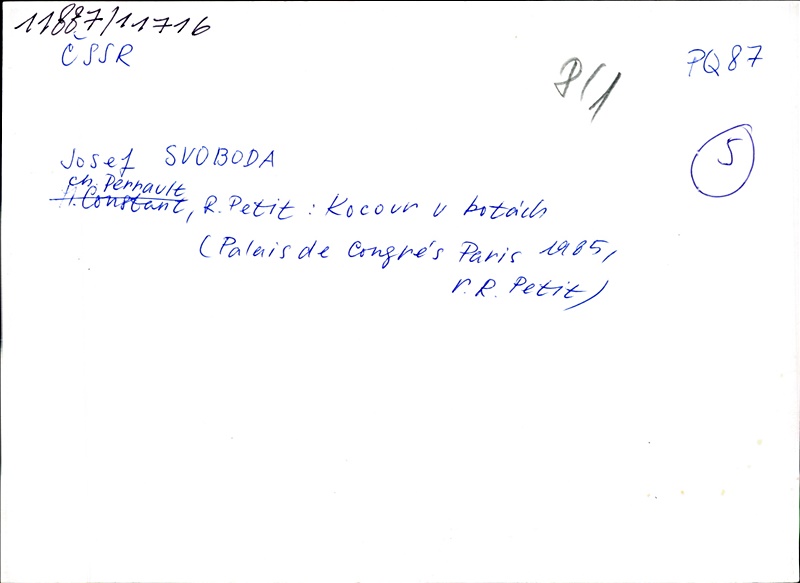 11887/11716
ČSSR
PQ87
P/1
5
Josef SVOBODA
Ch. Perrault
Constant, R. Petit : Kocour v botách
(Palais de Congrés Paris 1985,
r. R. Petit)